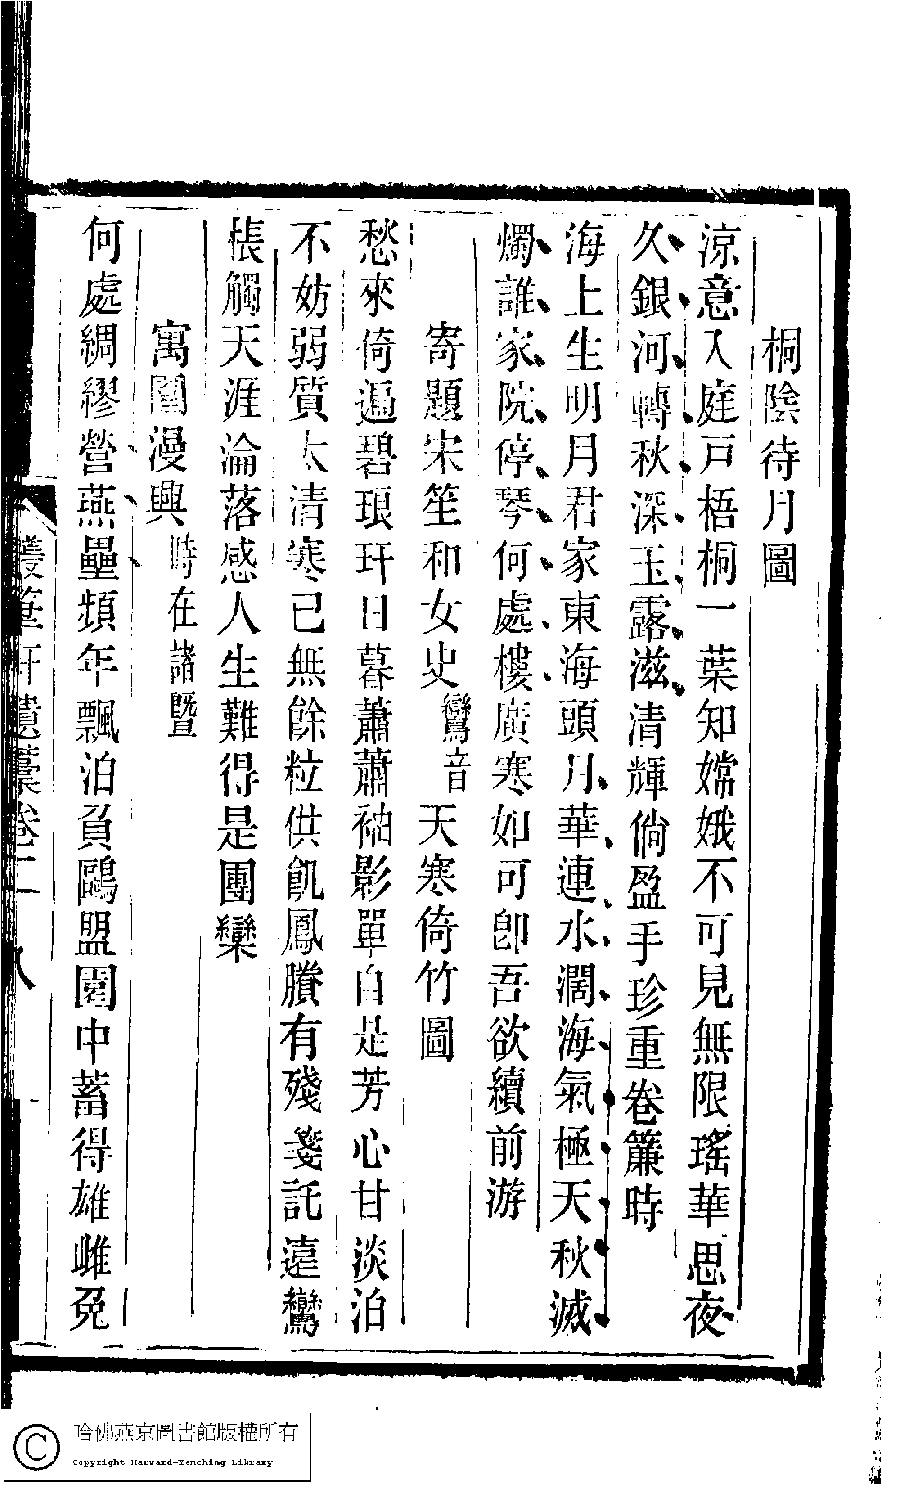 桐陰待月圖
涼意入庭戸梧桐一葉知嫦娥不可見無限瑤華思夜
久銀河轉秋深玉露滋清輝倘盈手珍重卷簾時
海上生明月君家東海頭月華連水濶海氣極天秋滅
燭誰家院停琴何處樓廣寒如可卽吾欲續前游
寄題宋笙和女史鸞音天寒倚竹圖
愁來倚遍碧琅玕日暮蕭蕭袖影單自是芳心甘淡泊
不妨弱質太清寒已無餘粒供飢鳳賸有殘箋託遠鸞
棖觸天涯淪落感人生難得是團欒
寓閣漫興時在諸曁
何處綢繆營燕壘頻年飄泊負鷗盟園中蓄得雄雌兔
叢筆軒遺藁卷二
八
哈佛燕京圖書館版權所有
Copyright Harvard-Yenching Library